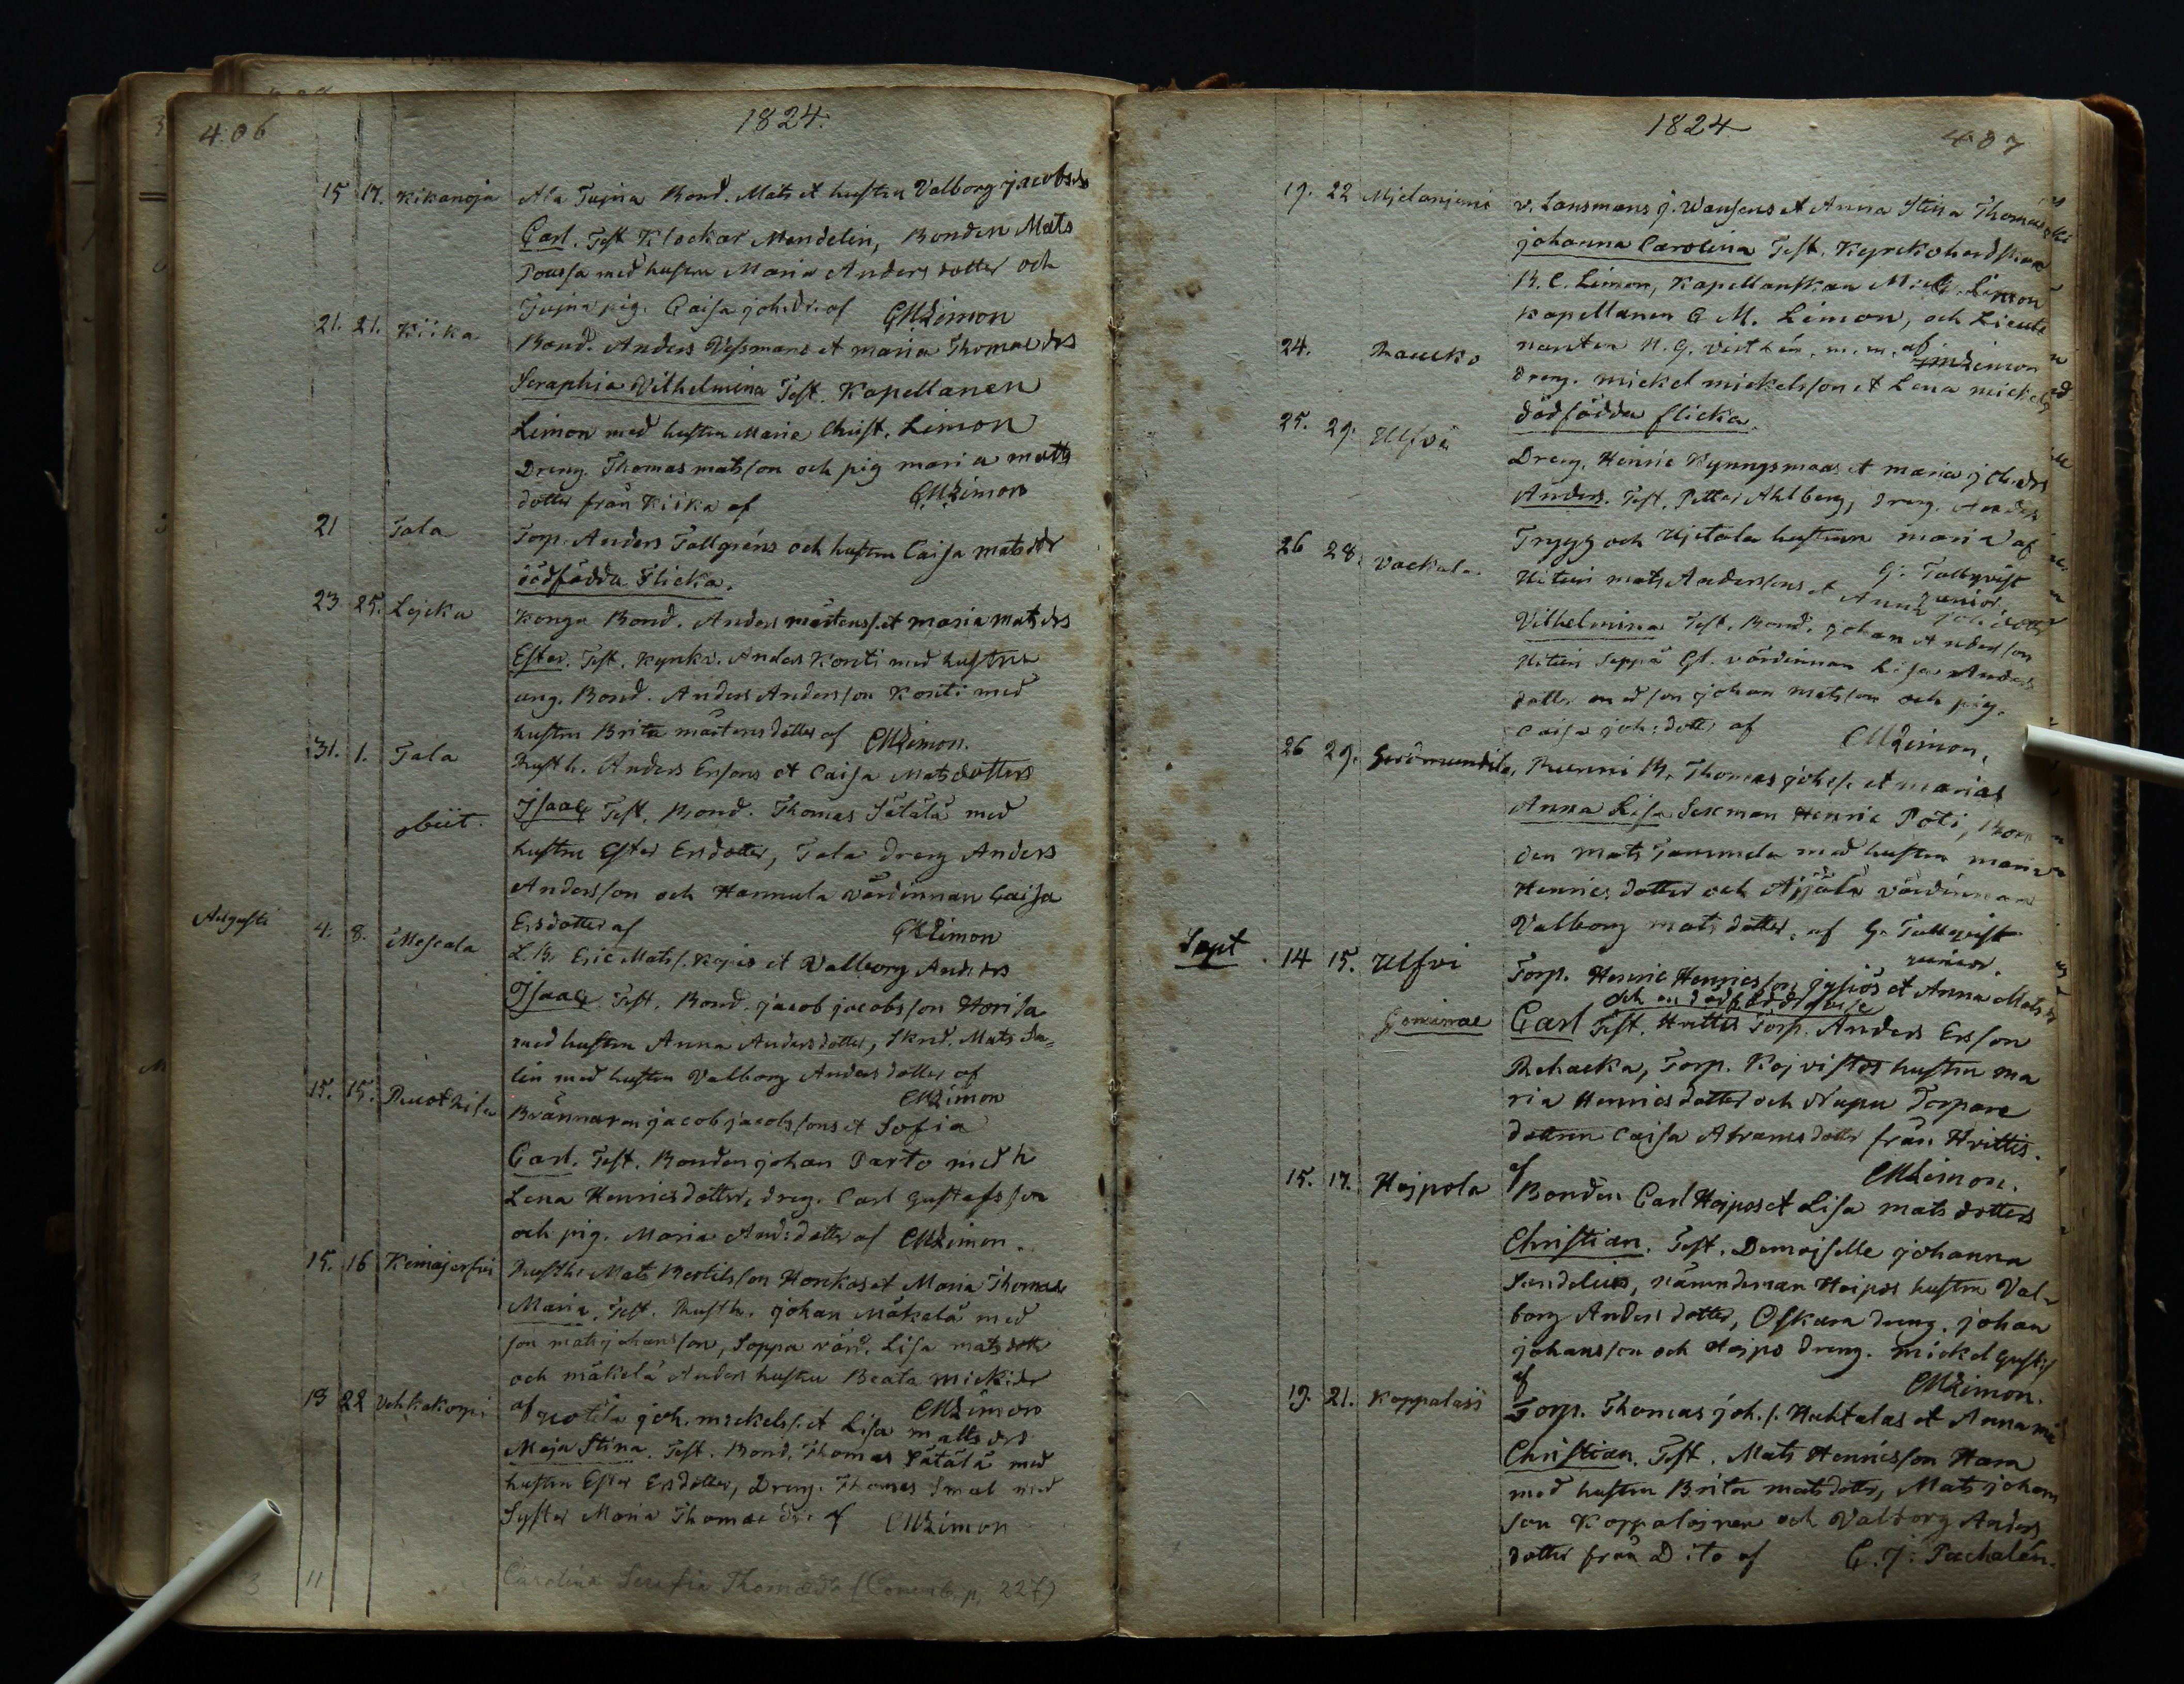 406
1824.
15 17. Kikanoja Ala Tujna Bond. Mats et hustru Valborg Jacobsdr
Carl. Test. Klockar Mendelin, Bonden Mats
Poussa med hustru Maria Anders dotter och
Tujna pig. Caisa joh:dr. af GMLimon
21. 21. Kiika Bond. Anders Vessmans et maria Thomae drs
Seraphia Vilhelmina Test. Kapellanen
Limon med hustru Maria Christ. Limon
Dreng. Thomas matsson och pig maria matts
dotter från Kiika af GMLimon
21 Tala Torp. Anders Tallgréns och hustru Caisa matsdr
dödfödda Flicka.
23 25. Lejcka Konga Bond. Anders mårtenss. et maria mats drs
Ester. Test. Kyrkv. Anders Konti med hustru
ung. Bond. Anders Andersson Konti med
hustru Brita mårtens dotter af GMLimon.
31. 1. Tala Rusth. Anders Ersons et Caisa Mats dotters
obiit. Isaac Test. Bond. Thomas Sätälä med
hustru Ester Ersdotter, Tala dreng Anders
Andersson och Hannula värdinnan Caisa
Ersdotter af GMLimon
Augusti 4. 8. Mescala L.B. Eric Mats. et Valborg Anders drs
Isaac Test. Bond. jacob jacobsson Horisa
med hustru Anna Andersdotter, Skrd. Mats
lin med hustru Valborg Anders dotter af
GMLimon
15. 15. Brännaren jacob jacobssons et Sofia
Carl. Test. Bonden johan Parto med h
Lena Henricsdotter, dreng. Carl Gustafsson
och pig. Maria And:dotter af GMLimon.
15. 16 Kemajerfvi Rusth. Mats Bertilsson Honkos et Maria Thomae
Maria. Test. Rusth. johan Mäkelä med
son mats johansson, Soppa värd. Lisa mats dotter
och mäkelä Anders hustru Beata mick:dr
af GMLimon
19 22 Vehkakorpi joh. mickelss. et Lisa matts drs
Maja Stina. Test. Bond. Thomas Sätälä med
hustru Ester Ersdotter, Dreng. Thomas Smal med
Syster Maria Thomae dr. af GMLimon
11 Carolina Serafia Thomædr (Comunb. p. 227)
1824
407
19. 22 v. Lansmans j. Wansens et Anna Stina Thomae
johanna Carolina Test. Kyrkoherdskan
B. C. Limon, Kapellanskan M. C. Limon
Kapellanen G M. Limon, och Lieute
nanten N. G. m. m. af GMLimon
24. Raucko dreng. mickel mickelsson et Lena mickels
dödfödda flicka.
25. 29. Ulfvi Dreng. Henric Kynngsmaas et maria joh. drs
Anders. Test. Petter Ahlberg, dreng. Anders
Trygg och Ujetala hustrun maria af
G: Tallqvist
junior.
26 28. Vackala. mats Anderssons et Anna joh:dotter
Vilhelmina Test. Bond. johan Andersson
Seppä Gl. värdinnan Lisa Anders
dotter med son johan matsson och pig.
Caisa joh:dotter af GMLimon.
26 29. Runni B. Thomas johss. et marias
Anna Lisa Sexman Henric Pöti, Bon
den Mats Tammela med hustru maria
Henrics dotter och Äjjälä värdinnan
Valborg mats dotter. af G. Tallqvist
junior.
Sept 14 15. Ulfvi Torp. Henric Henricsson et Anna Mats dr
Geminae Carl och en dödfödd Test. Hvittis Torp. Anders Ersson
Rehacka, Torp. Kojvistos hustru ma
ria Henricsdotter och Nupu Torpare
dottern Caisa Abramsdotter från Hvittis.
af GMLimon.
15. 17. Hejpola Bonden Carl Hejpos et Lisa mats dotters
Christian. Test. Demoiselle johanna
Sandelius, nämndeman Heipos hustru Val
borg Anders dotter, Oskara dreng. johan
johansson och Hejpo dreng. mickel Gustfs
af GMLimon.
19. 21. Koppalais Torp. Thomas joh.s. Huhtalas et Anna
Christian. Test. Mats Henricsson Hara
med hustru Brita matsdotter, Mats johans
son Koppalojnen och Valborg Anders
dotter från Dito af G. J: Pachalén.